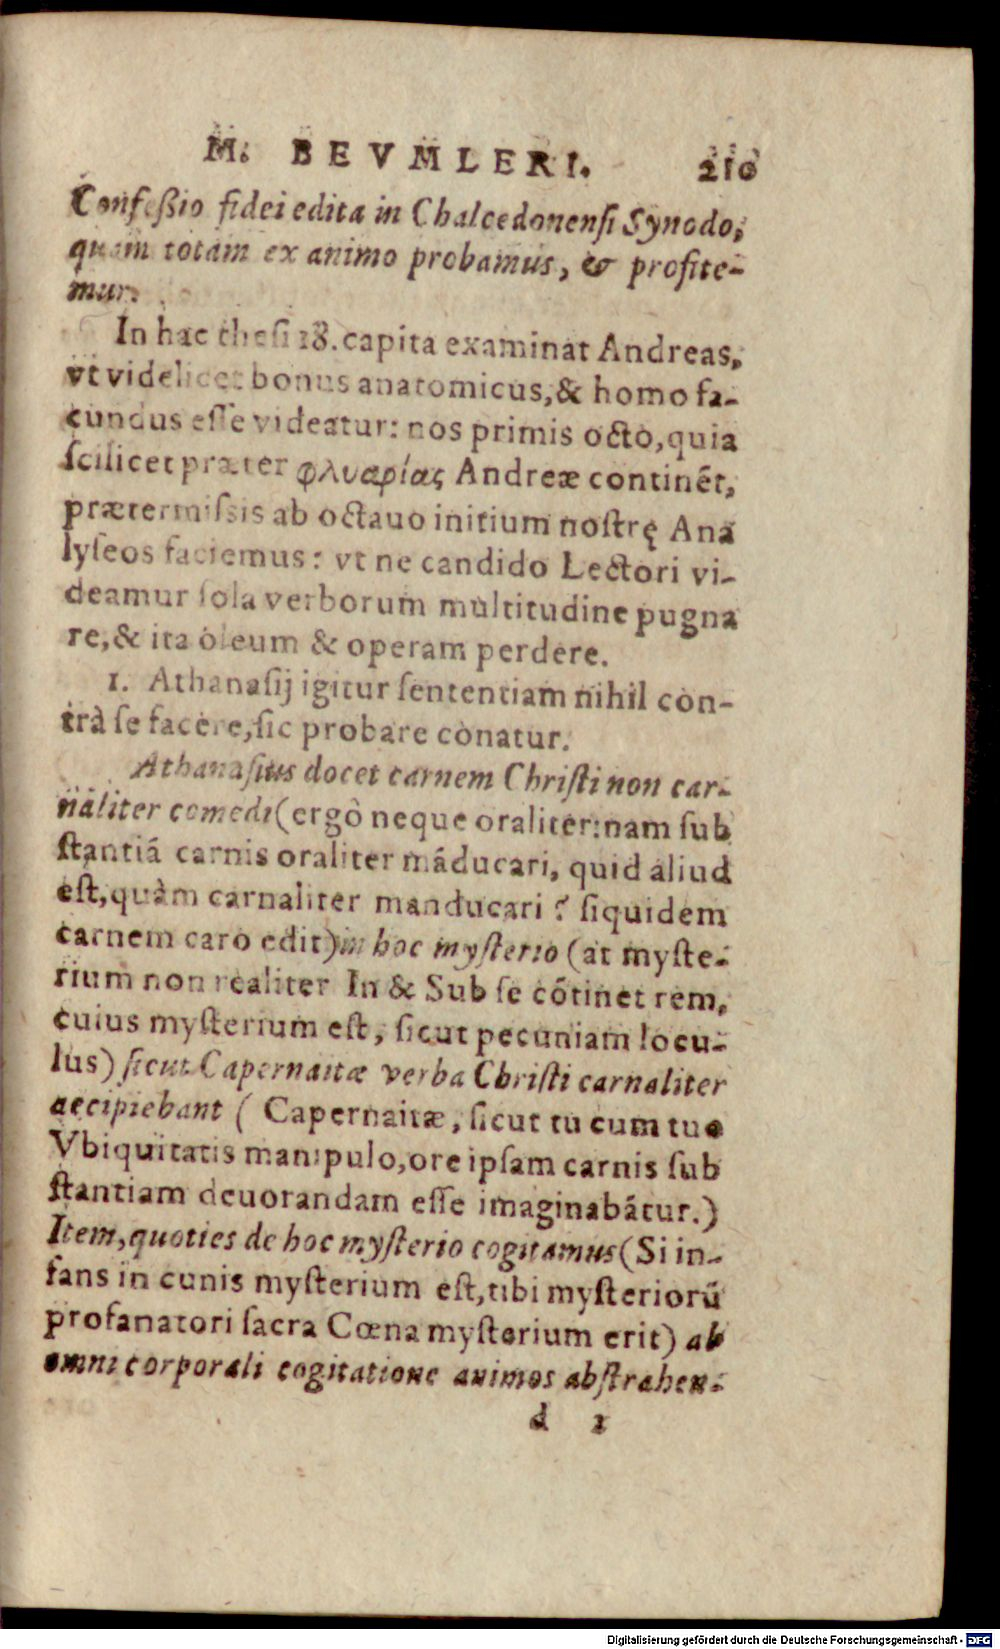 M. BEVMLERI. 210
Confeßio fidei edita in Chalcedonensi Synodo,
quam totam ex animo probamus, & profite-
mur.
In hac thesi 18. capita examinat Andreas,
vt videlicet bonus anatomicus, & homo fa-
cundus esse videatur: nos primis octo, quia
scilicet præter φλυαρίας Andreæ continẽt,
prætermissis ab octauo initium nostrę Ana
lyseos faciemus: vt ne candido Lectori vi-
deamur sola verborum multitudine pugna
re, & ita oleum & operam perdere.
1. Athanasij igitur sententiam nihil con-
trà se facere, sic probare conatur.
Athanasius docet carnem Christi non car-
naliter comedi (ergô neque oraliter: nam sub
stantiã carnis oraliter mãducari, quid aliud
est, quàm carnaliter manducari? siquidem
carnem caro edit) in hoc mysterio (at myste-
rium non realiter In & Sub se cõtinet rem,
cuius mysterium est, sicut pecuniam locu-
lus) sicut Capernaitæ verba Christi carnaliter
accipiebant (Capernaitæ, sicut tu cum tuo
Vbiquitatis manipulo, ore ipsam carnis sub
stantiam deuorandam esse imaginabãtur.)
Item, quoties de hoc mysterio cogitamus (Si in-
fans in cunis mysterium est, tibi mysteriorũ
profanatori sacra Cœna mysterium erit) ab
omni corporali cogitatione animos abstrahen-
d 1
Digitalisierung gefördert durch die Deutsche Forschungsgemeinschaft - DFG